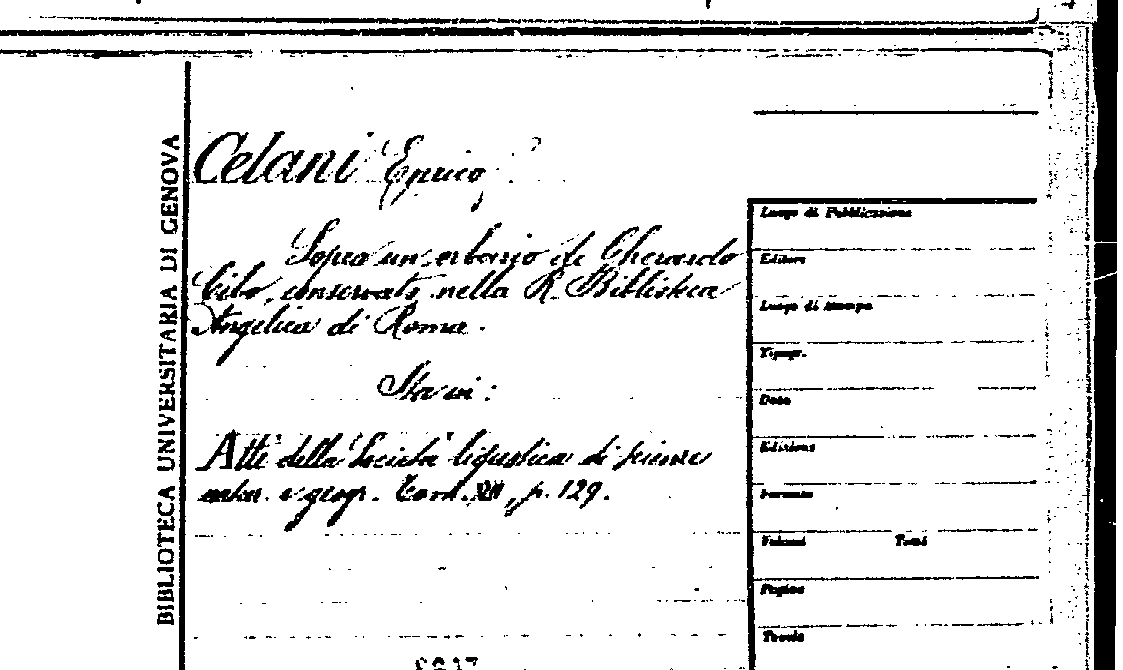 BIBLIOTECA UNIVERSITARIA DI GENOVA
Celani Enrico
Sopra un erbario di Gherardo
Cibo, conservato nella R. Biblioteca
Angelica di Roma.
Sta in:
Atti della Società ligustica di scienze
natur. e geogr. Tom. XIII, p. 129.
Luogo di Pubblicazione
Editore
Luogo di stampa
Tipogr.
Data
Edizione
Formato
Volumi Tomi
Pagine
Tavole